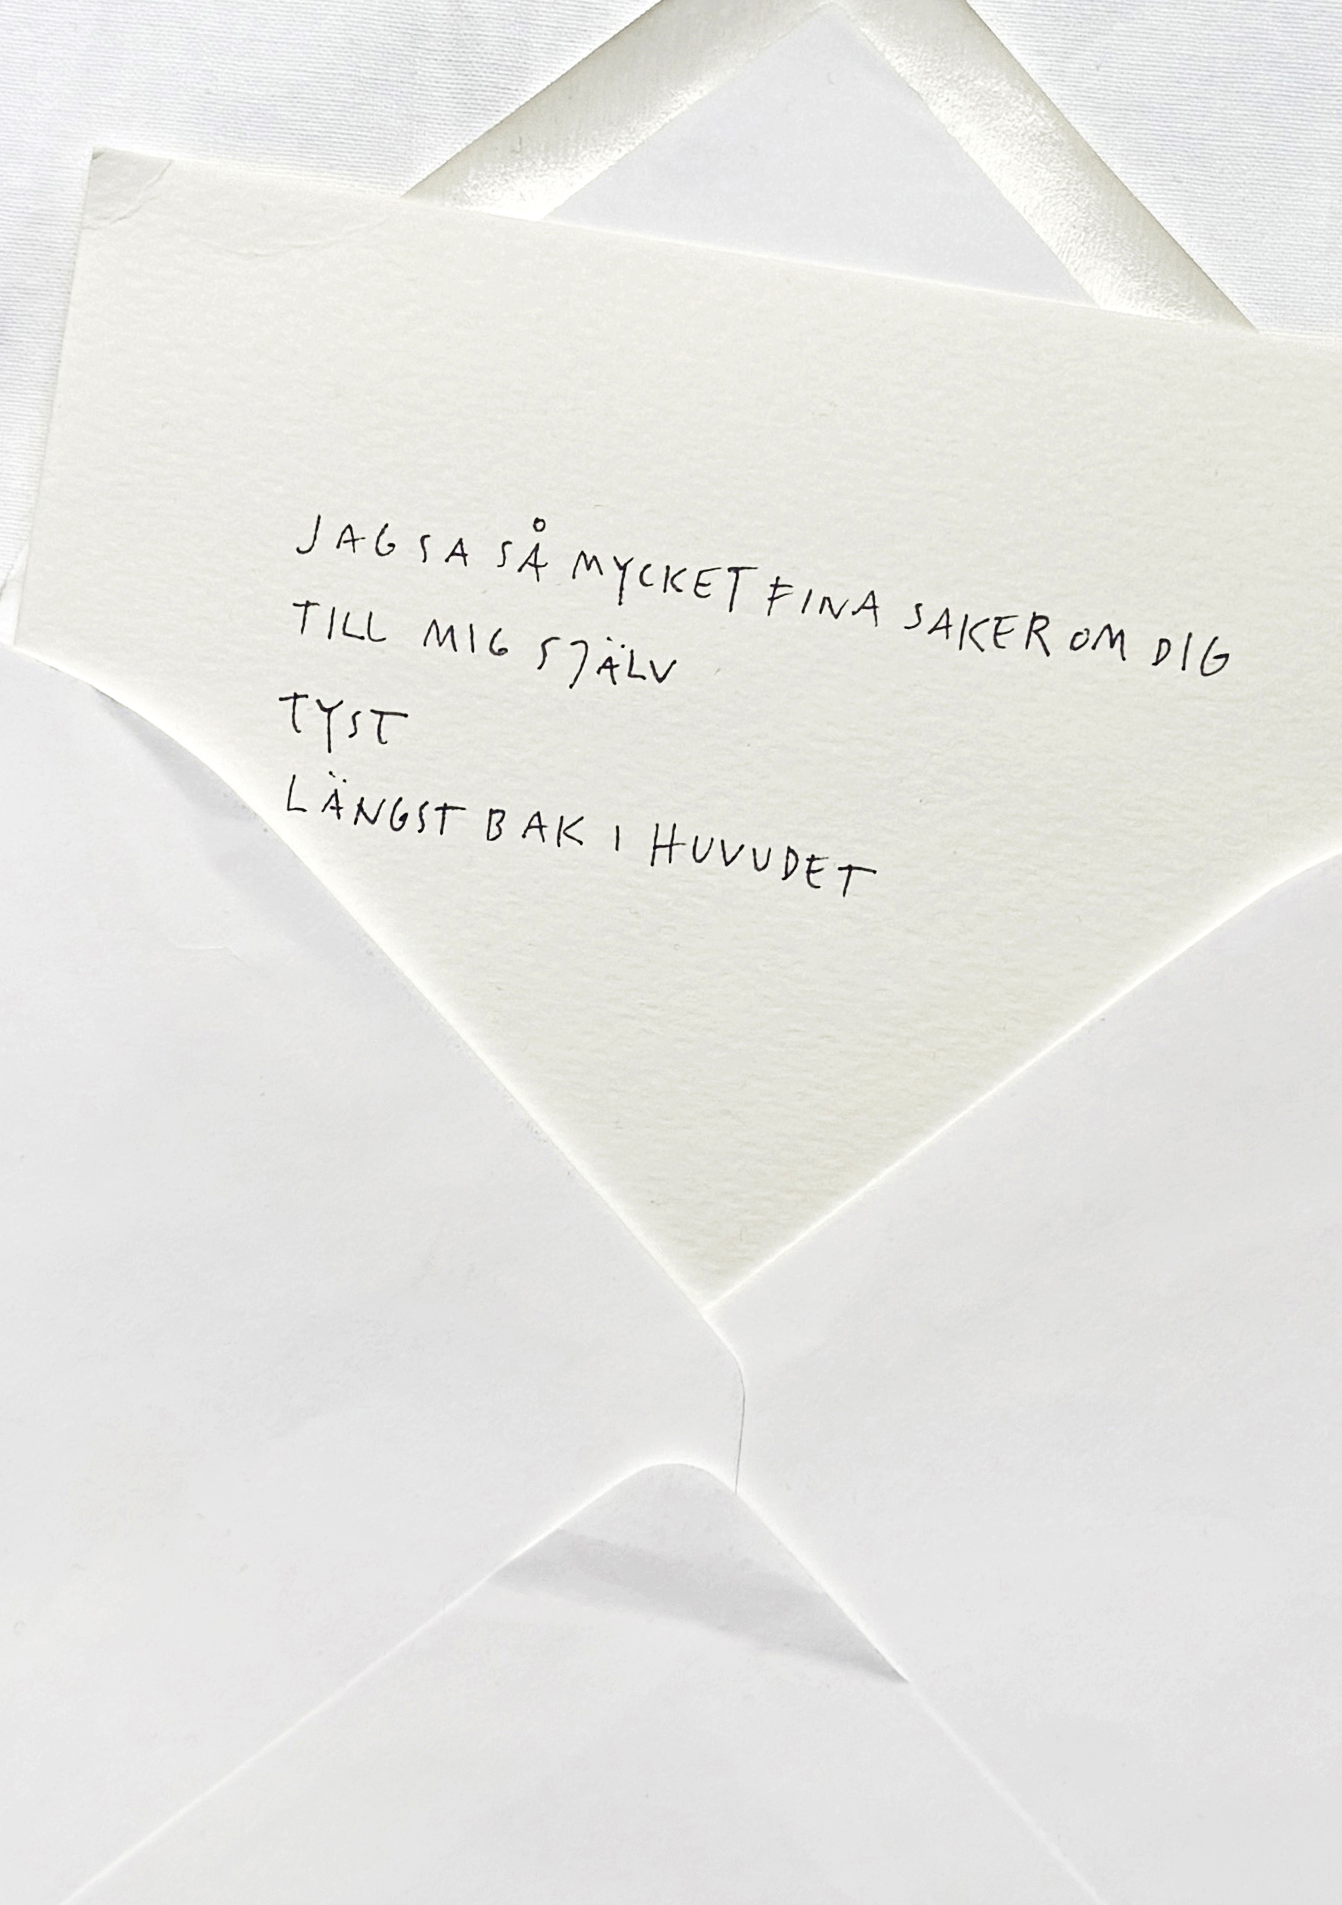 JAG SA SÅ MYCKET FINA SAKER OM DIG
TILL MIG SJÄLV
TYST
LÄNGST BAK I HUVUDET